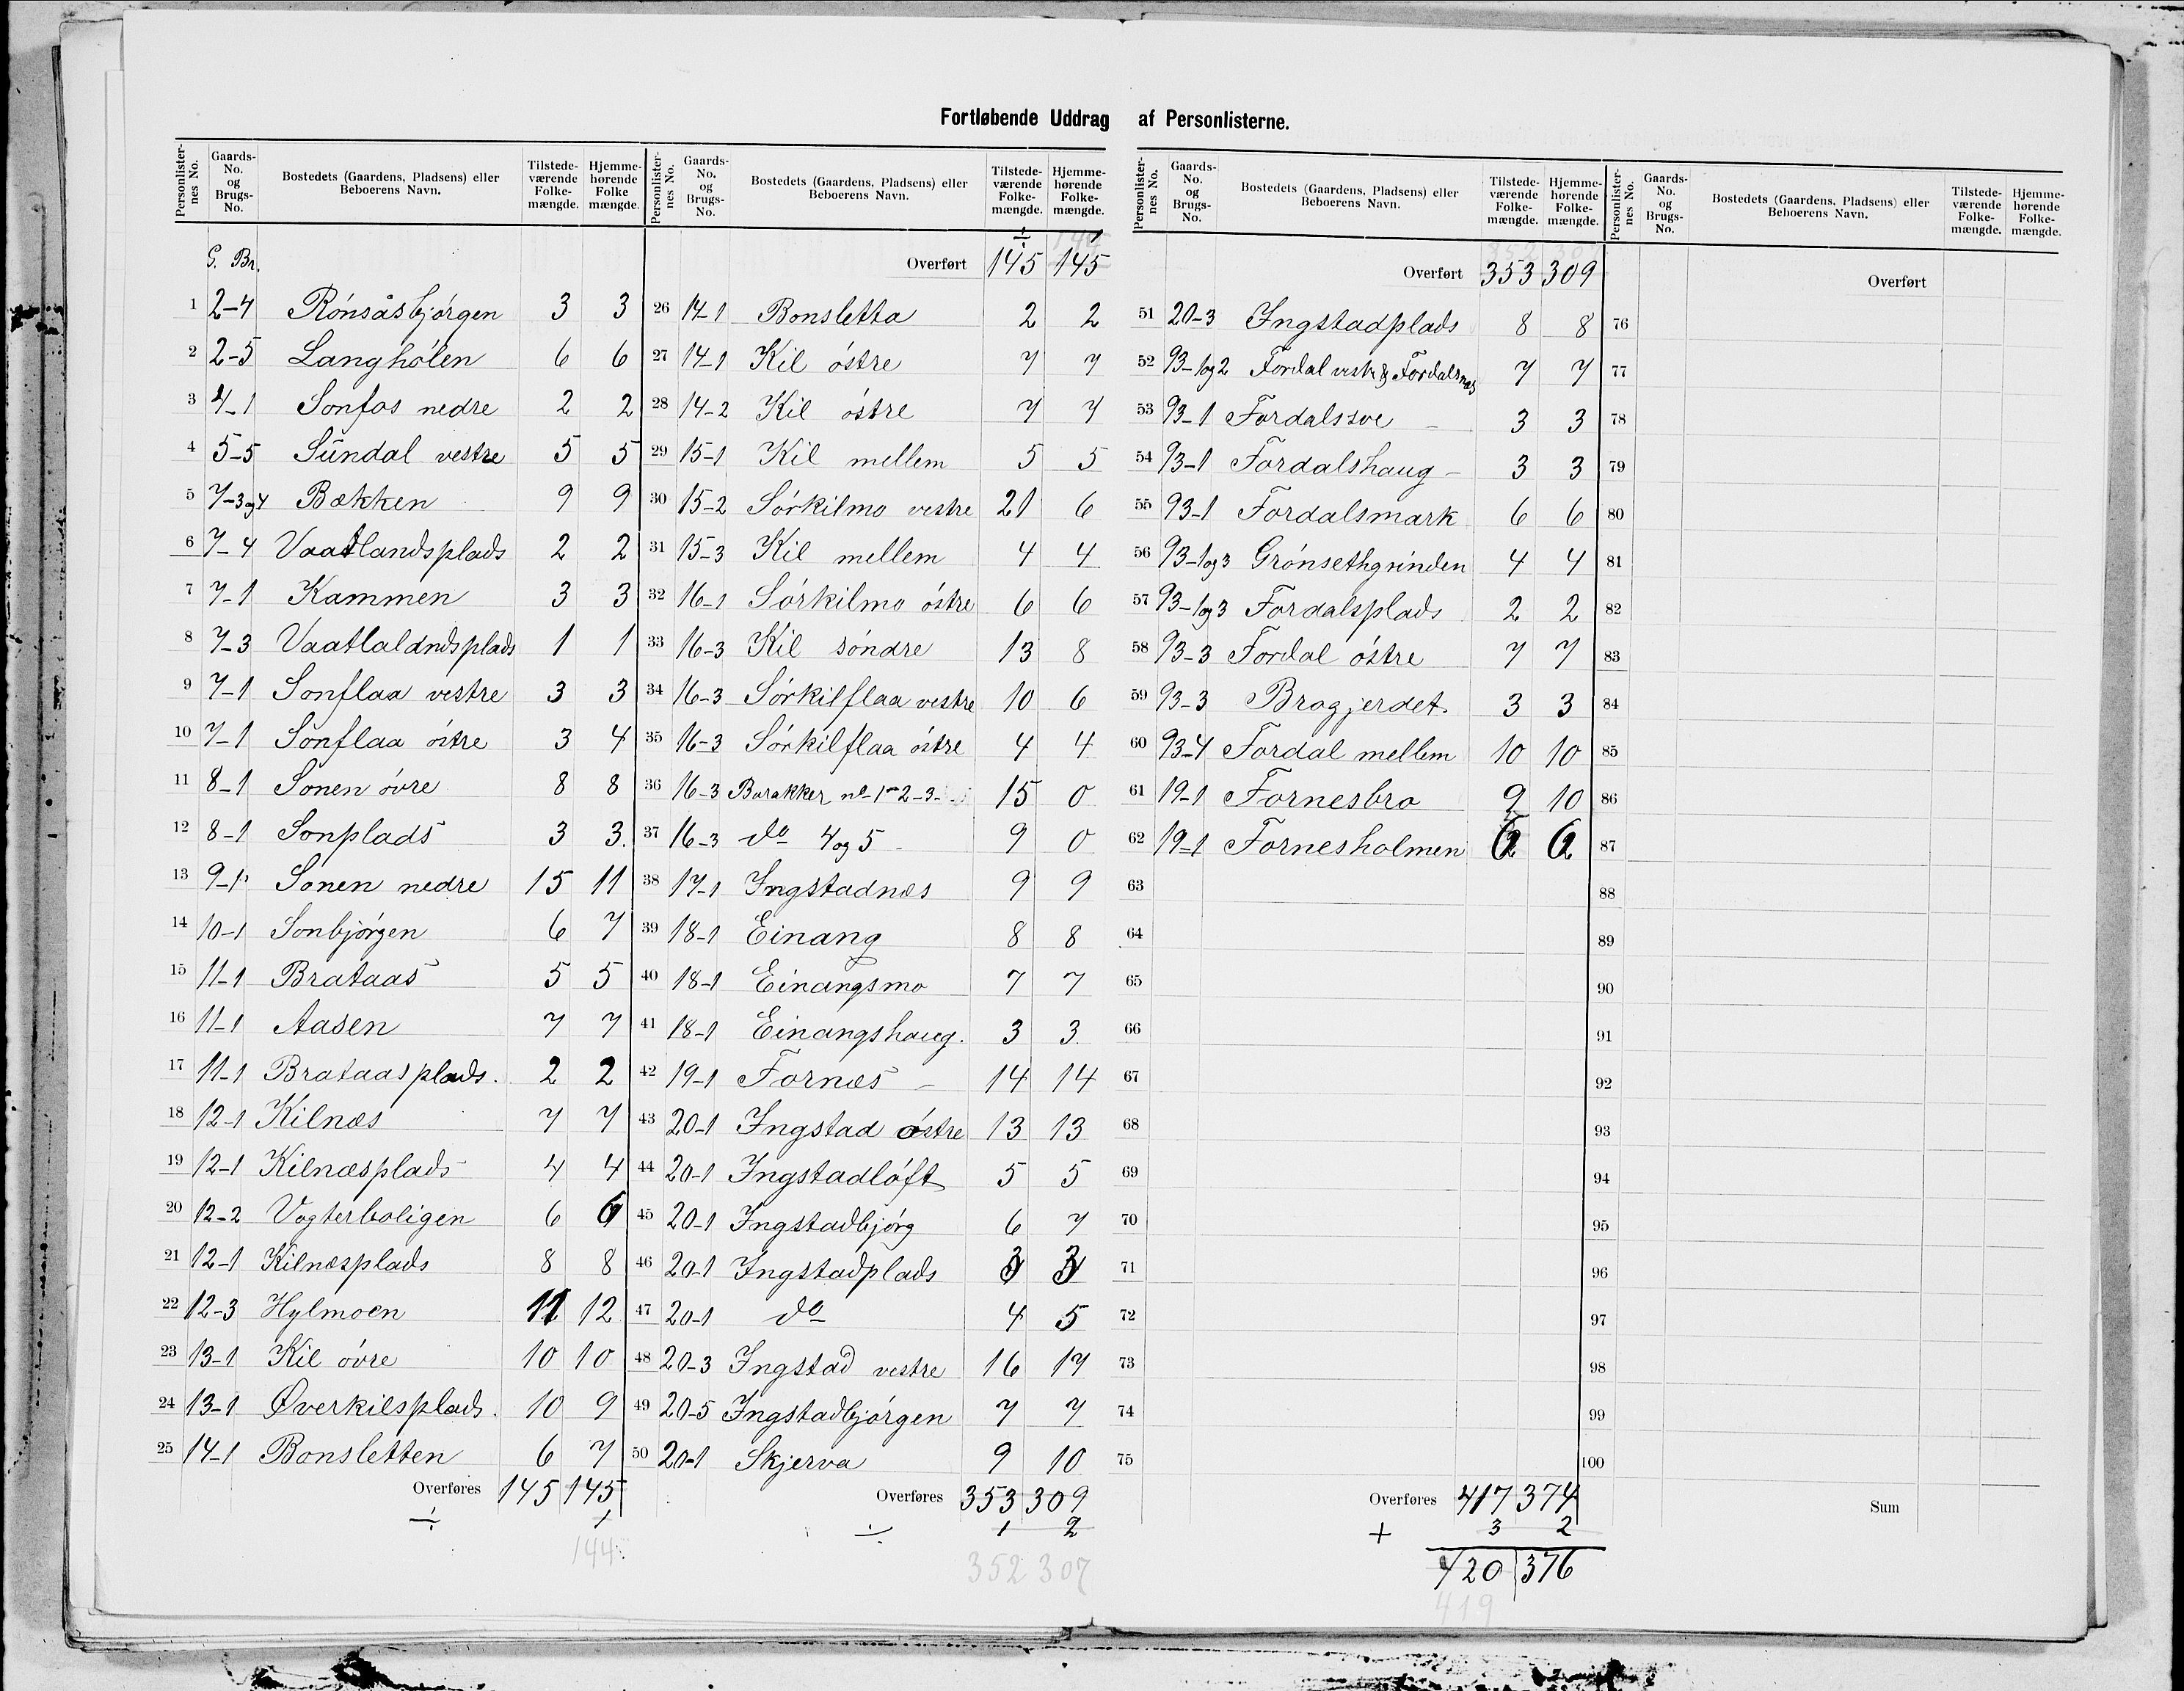 Fortløbende Uddrag af Personlisterne.
Personlisternes No. Gaards-No. og Brugs-No. Bostedets (Gaardens, Pladsens) eller Beboerens Navn. Tilstedeværende Folkemængde. Hjemmehørende Folkemængde.
G. Br.
1 2-4 Rónsåsbjórgen 3 3
2 2-5 Langhólen 6 6
3 4-1 Sonfos nedre 2 2
4 5-5 Sundal vestre 5 5
5 7-3og4 Bækken 9 9
6 7-4 Vaatlandsplads 2 2
7 7-1 Kammen 3 3
8 7-3 Vaatlaldndsplads 1 1
9 7-1 Sonflaa vestre 3 3
10 7-1 Sonflaa óstre 3 4
11 8-1 Sonen óvre 8 8
12 8-1 Sonplads 3 3.
13 9-1 Sonen nedre 15 11
14 10-1 Sonbjórgen 6 7
15 11-1 Brataas 5 5
16 11-1 Aasen 7 7
17 11-1 Brataasplads. 2 2
18 12-1 Kilnæs 7 7
19 12-1 Kilnæsplads 4 4
20 12-2 Vogterboligen 6 6
21 12-1 Kilnæsplads 8 8
22 12-3 Hylmoen 11 12
23 13-1 Kil óvre 10 10
24 13-1 Øverkilsplads. 10 9
25 14-1 Bonsletten 6 7
Overføres 145 145
÷ 1
144
Personlisternes No. Gaards-No. og Brugs-No. Bostedets (Gaardens, Pladsens) eller Beboerens Navn. Tilstedeværende Folkemængde. Hjemmehørende Folkemængde.
÷ 1
144
Overført 145 145
26 14-1 Bonsletta 2 2
27 14-1 Kil óstre 7 7
28 14-2 Kil óstre 7 7
29 15-1 Kil mellem 5 5
30 15-2 Sórkilmo vestre 21 6
31 15-3 Kil mellem 4 4
32 16-1 Sórkilmo óstre 6 6
33 16-3 Kil sóndre 13 8
34 16-3 Sórkilflaa vestre 10 6
35 16-3 Sórkilflaa óstre 4 4
36 16-3 Barakker no 1-2-3- 15 0
37 16-3 do 4og5 - 9 0
38 17-1 Ingstadnæs 9 9
39 18-1 Einang 8 8
40 18-1 Einangsmo 7 7
41 18-1 Einangshaug. 3 3
42 19-1 Fornæs - 14 14
43 20-1 Ingstad óstre 13 13
44 20-1 Ingstadlóft 5 5
45 20-1 Ingstadbjórg 6 7
46 20-1 Ingstadplads 3 3
47 20-1 do 4 5
48 20-3 Ingstad vestre 16 17
49 20-5 Ingstadbjórgen 7 7
50 20-1 Skjerva 9 10
Overføres 353 309
÷ 1 2
352 307
Personlisternes No. Gaards-No. og Brugs-No. Bostedets (Gaardens, Pladsens) eller Beboerens Navn. Tilstedeværende Folkemængde. Hjemmehørende Folkemængde.
Overført 353 309
51 20-3 Ingstadplads 8 8
52 93-1og2 Fordal vestre & Fordalsnæs 7 7
53 93-1 Fordalssve - 3 3
54 93-1 Fordalshaug - 3 3
55 93-1 Fordalsmark 6 6
56 93-1og3 Grónsethgrinden 4 4
57 93-1og3 Fordalsplads 2 2
58 93-3 Fordal óstre 7 7
59 93-3 Brogjerdet. 3 3
60 93-4 Fordal mellem 10 10
61 19-1 Fornesbro 9 10
62 19-1 Fornesholmen
63
64
65
66
67
68
69
70
71
72
73
74
75
Overføres 417 374
+ 3 2
420 376
419
Personlisternes No. Gaards-No. og Brugs-No. Bostedets (Gaardens, Pladsens) eller Beboerens Navn. Tilstedeværende Folkemængde. Hjemmehørende Folkemængde.
Overført
76
77
78
79
80
81
82
83
84
85
86
87
88
89
90
91
92
93
94
95
96
97
98
99
100
Sum